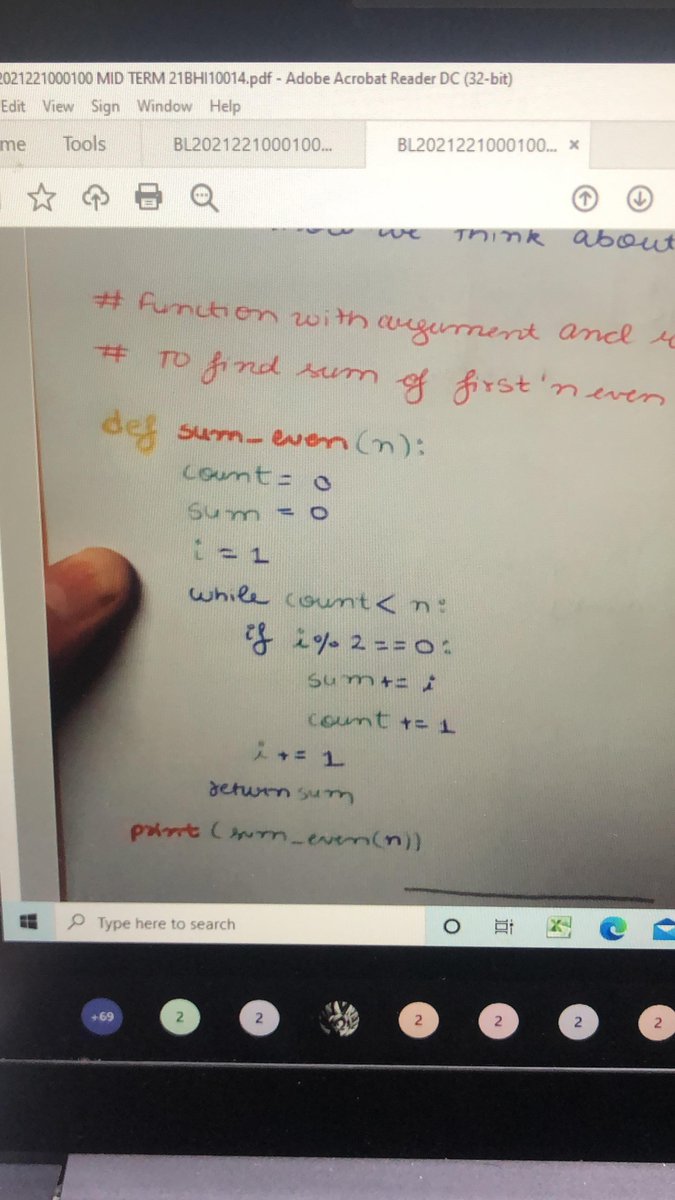 2021221000100 MID TERM 21BHI10014.pdf - Adobe Acrobat Reader DC (32-bit)
Edit View Sign Window Help
me Tools BL2021221000100... BL2021221000100... ×
we think about
# Function with argument and
# TO find sum of first 'n even
def sum_even(n):
count = 0
sum = 0
i = 1
while count < n:
if i % 2 == 0:
sum += i
count += 1
i += 1
return sum
print (sum_even(n))
Type here to search
+69 2 2 2 2 2 2